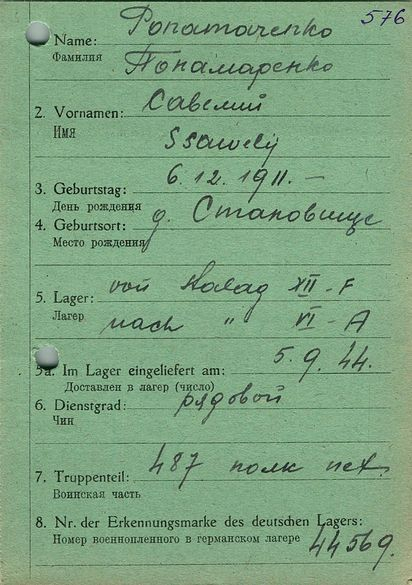 576
Name: Ponamarenko
Фамилия Понамаренко
2. Vornamen: Савелий
Имя Ssawelij
3. Geburtstag: 6.12.1911.—
День рождения
4. Geburtsort: д. Становище
Место рождения
5. Lager: von Stalag XII-F
Лагер nach " VI-A
5a. Im Lager eingeliefert am: 5.9.44.
Доставлен в лагер (число)
6. Dienstgrad: рядовой
Чин
7. Truppenteil: 487 полк пех.
Воинская часть
8. Nr. der Erkennungsmarke des deutschen Lagers:
Номер военнопленного в германском лагере 44569.